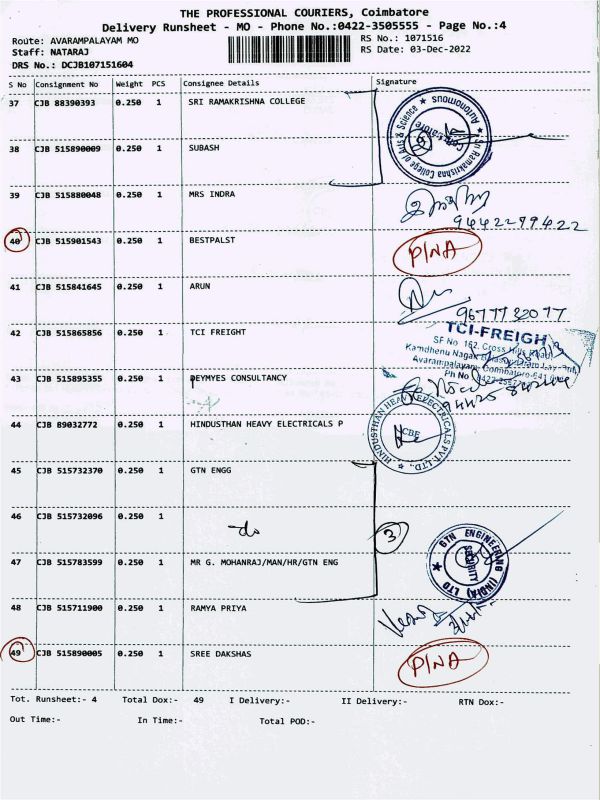 THE PROFESSIONAL COURIERS, Coimbatore
Delivery Runsheet - MO - Phone No.:0422-3505555 - Page No.:4
Route: AVARAMPALAYAM MO
RS No.: 1071516
Staff: NATARAJ
RS Date: 03-Dec-2022
DRS No.: DCJB107151604
S No Consignment No Weight PCS Consignee Details Signature
37 CJB 88390393 0.250 1 SRI RAMAKRISHNA COLLEGE
Sri Ramakrishna College of Arts & Science
AUTONOMOUS
38 CJB 515890009 0.250 1 SUBASH
39 CJB 515880048 0.250 1 MRS INDRA
9442299422
40 CJB 515901543 0.250 1 BESTPALST PINA
41 CJB 515841645 0.250 1 ARUN
9677732077
42 CJB 515865856 0.250 1 TCI FREIGHT
TCI-FREIGH
SF No 162, Cross
Kamdhenu Nagar
Avarampalayam, Coimbatore-64
Ph No
43 CJB 515895355 0.250 1 PEYMYES CONSULTANCY
44 CJB 89032772 0.250 1 HINDUSTHAN HEAVY ELECTRICALS P
HINDUSTHAN HEAVY ELECTRICALS PVT. LTD.,
CBE
45 CJB 515732370 0.250 1 GTN ENGG
46 CJB 515732096 0.250 1 do
3
GTN ENGINEERING (INDIA) LTD
SECURITY
47 CJB 515783599 0.250 1 MR G. MOHANRAJ/MAN/HR/GTN ENG
48 CJB 515711900 0.250 1 RAMYA PRIYA
49 CJB 515890005 0.250 1 SREE DAKSHAS PINA
Tot. Runsheet:- 4 Total Dox:- 49 I Delivery:- II Delivery:- RTN Dox:-
Out Time:- In Time:- Total POD:-